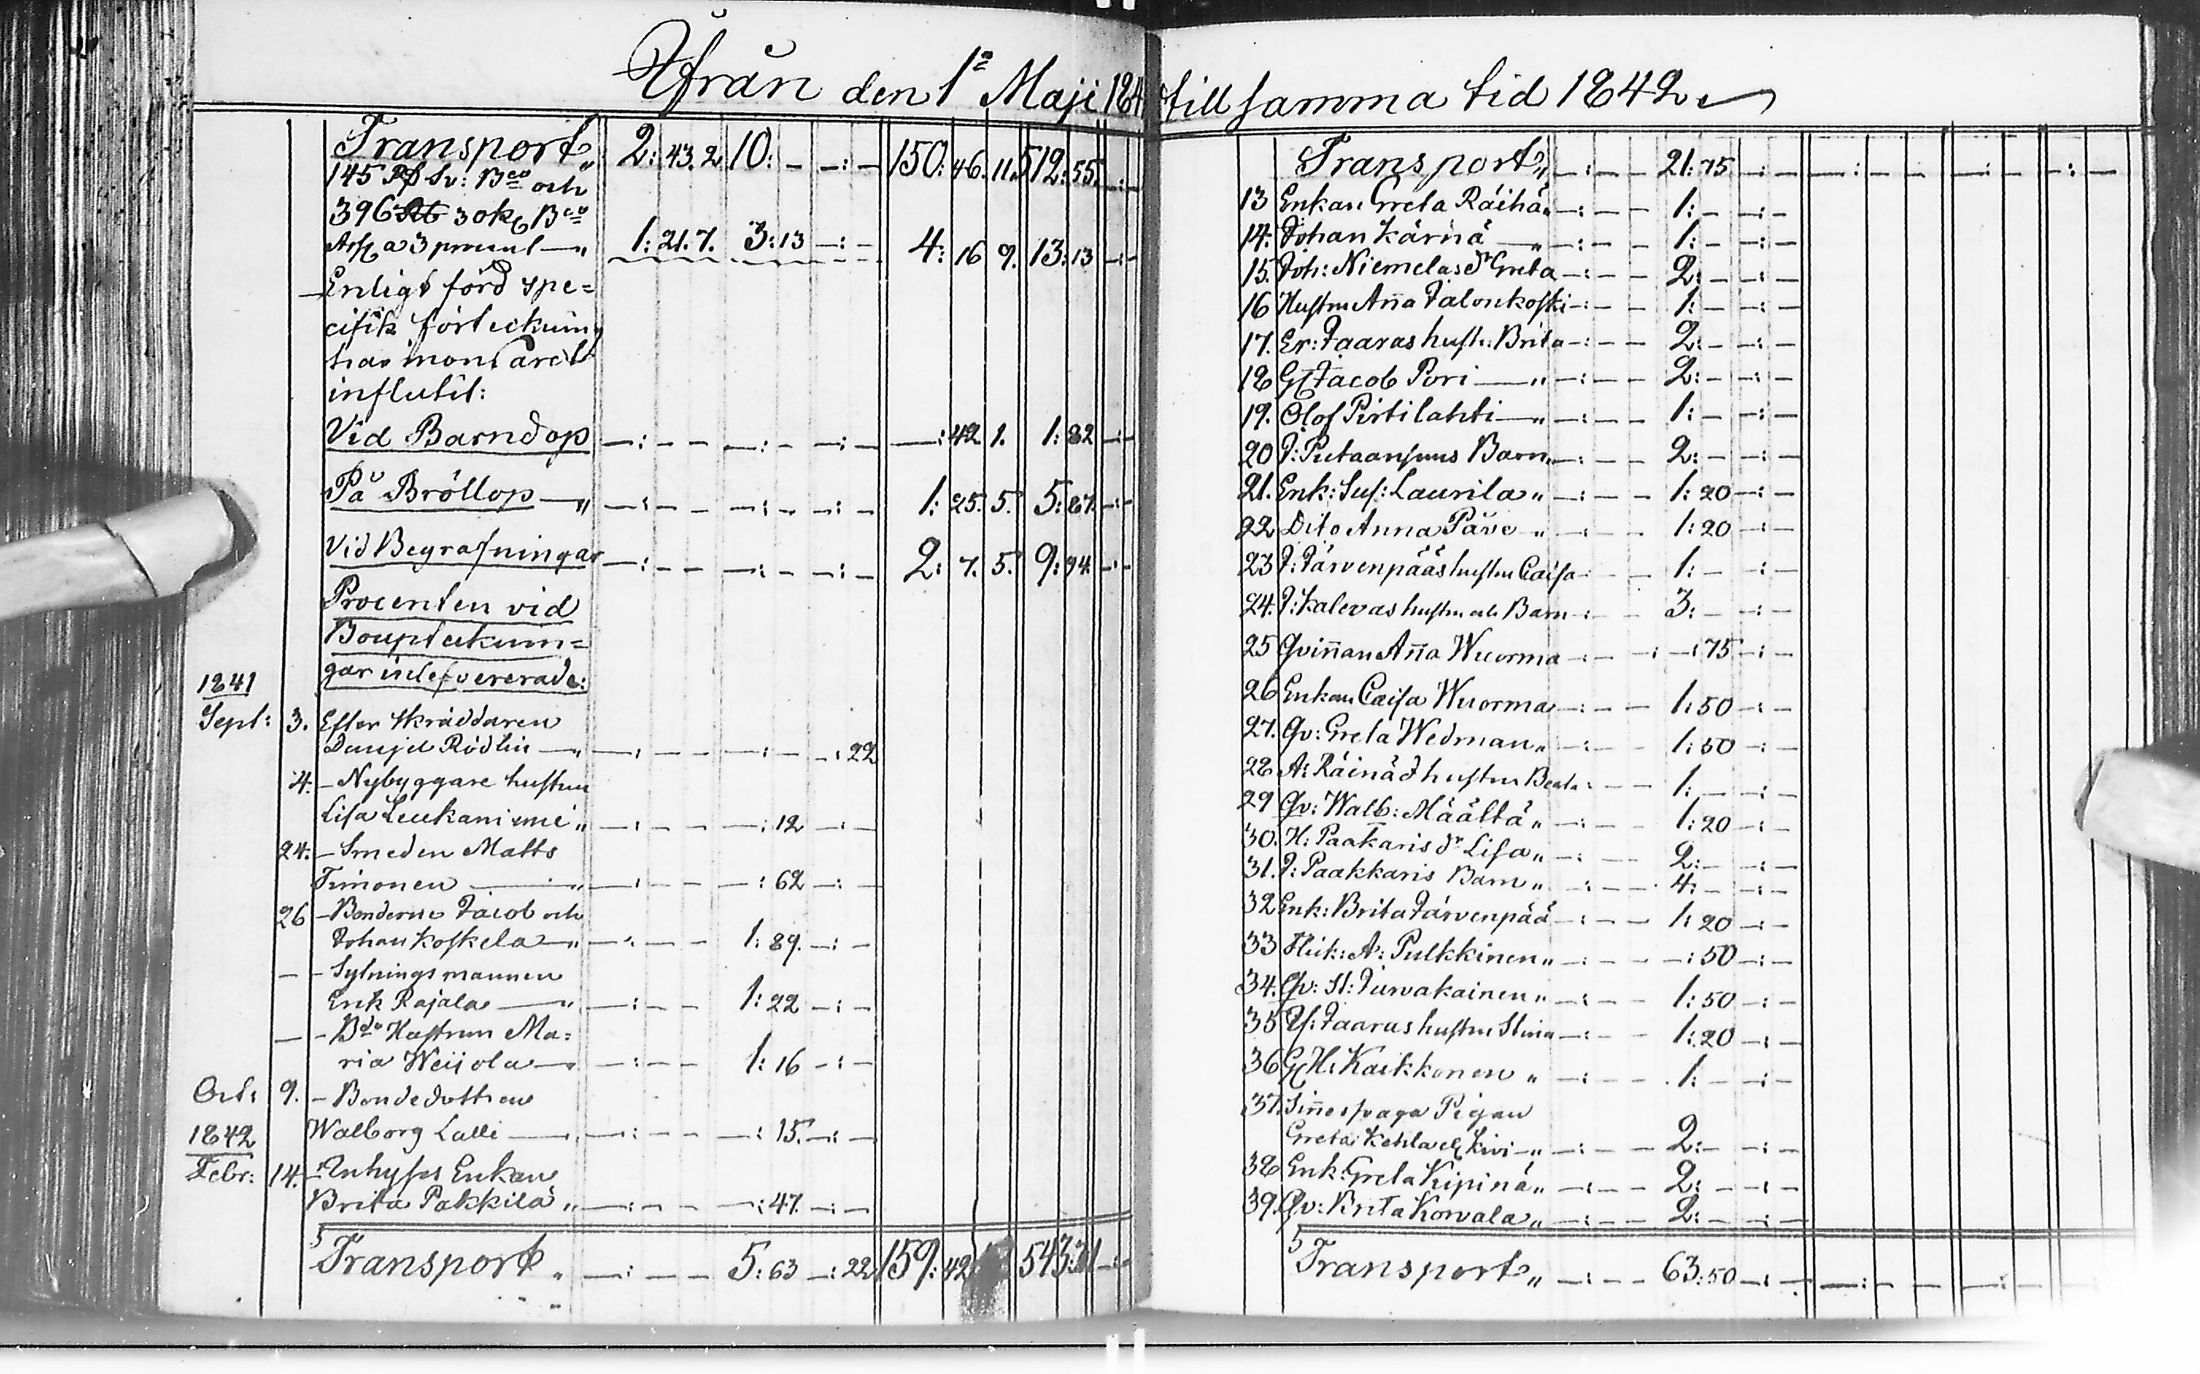 Ifrån den 1a Maji 184 till samma tid 1842
Transport " 2: 43. 2 10: – –:– 150. 46. 11. 512: 55. –:–
145 Rß Sv: Bco och
396 30k Bco
a 3 procent — " 1: 21. 7. 3: 13 –:– 4: 16 9. 13: 13 –:–
Enligt förd spe=
cifik förteckning
har inom året
influtit:
Vid Barndop –:– – –:– –:– –: 42 1. 1: 82 –:–
På Bröllop — " –:– – –:– –:– 1: 25. 5. 5: 87. –:–
Vid Begrafningar –:– – –:– –:– 2: 7. 5. 9: 94. –:–
Procenten vid
Bouptecknin=
gar inlefvererade:
1841
Sept: 3. Efter Skräddaren
Danjel Rödlin — " –:– – –:– –: 22
4. – Nybyggare hustrun
Lisa " –:– – –: 12 –:–
24. – Smeden Matts
Timonen — " –:– – –: 62 –:–
26 – Bönderne Jacob och
Johan Koskela — " –:– – 1: 89. –:–
– – Sytningsmannen
Erik Rajala — " –:– – 1: 22 –:–
– – Bdo Hustrun Ma=
ria Weijola — –:– – 1: 16 –:–
Oct: 9. – Bondedottren
1842 Walborg Lalli — –:– – –: 15. –:–
Febr: 14. – Inhyses Enkan
Brita Pakkila " –:– – –: 47. –:–
5 Transport " –:– – 5: 63 –: 22 159: 42 543: 31 –:–
Transport " –:– – 21: 75 –:– –:– – –:– –:–
13 Enkan Greta Räihä " –:– – 1: – –:–
14. Johan Kärnä — " –:– – 1: – –:–
15. Joh: Niemelas dr Greta –:– – 2: – –:–
16 Hustru Anna Jalonkoski –:– – 1: – –:–
17. Er: Jaaras hust: Brita –:– – 2: – –:–
18 Jacob Pori — " –:– – 2: – –:–
19. Olof Pirtilahti — " –:– – 1: – –:–
20 J: Putaansuus Barn " –:– – 2: – –:–
21. Enk: Sus: Laurila " –:– – 1: 20 –:–
22 Dito Anna Päve " –:– – 1: 20 –:–
23 J: Järvenpääs hustru Caisa – – 1: – –:–
24. J: Kalevas hustru och Barn – – 3: – –:–
25 Qvinnan Anna Wuorma –:– – –: 75 –:–
26 Enkan Caisa Wuorma –:– – 1: 50 –:–
27. Qv: Greta Wedman " –:– – 1: 50 –:–
28 A: Räinäd hustru Beata –:– – 1: – –:–
29 Qv: Walb: Määttä " –:– – 1: 20 –:–
30. H: Paakaris dr Lisa " –:– – 2: – –:–
31. J: Paakkaris Barn " –:– – 4: – –:–
32 Enk: Brita Järvenpää –:– – 1: 20 –:–
33 Flick: A: Pulkkinen " –:– – –: 50 –:–
34. Qv: St: Jurvakainen " –:– – 1: 50 –:–
35 Jaaras hustru Stina –:– – 1: 20 –:–
36 H: Karkkonen " –:– – 1: – –:–
37. Sinnesvaga Pigan
Greta Kehla el Kivi — " –:– – 2: – –:–
38 Enk: Greta Kipinä " –:– – 2: – –:–
39. Qv: Brita Korvala " –:– – 2: – –:–
5 Transport " –:– – 63: 50 –:– –:– – –:– –:–